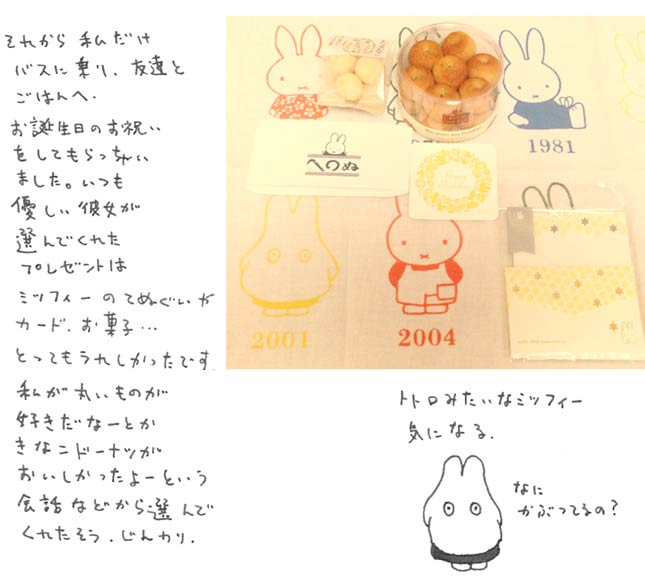 それから 私だけ
バスに乗り、友達と
ごはんへ.
お誕生日のお祝い
をしてもらっちゃい
ました。いつも
優しい彼女が
選んでくれた
プレゼントは
ミッフィーのてぬぐいや
カード、お菓子…
とってもうれしかったです.
私が丸いものが
好きだなーとか
きなこドーナツが
おいしかったよーという
会話などから選んで
くれたそう.じんわり.
へのぬ
1981
2001
2004
トトロみたいなミッフィー
気になる.
なに
かぶってるの?